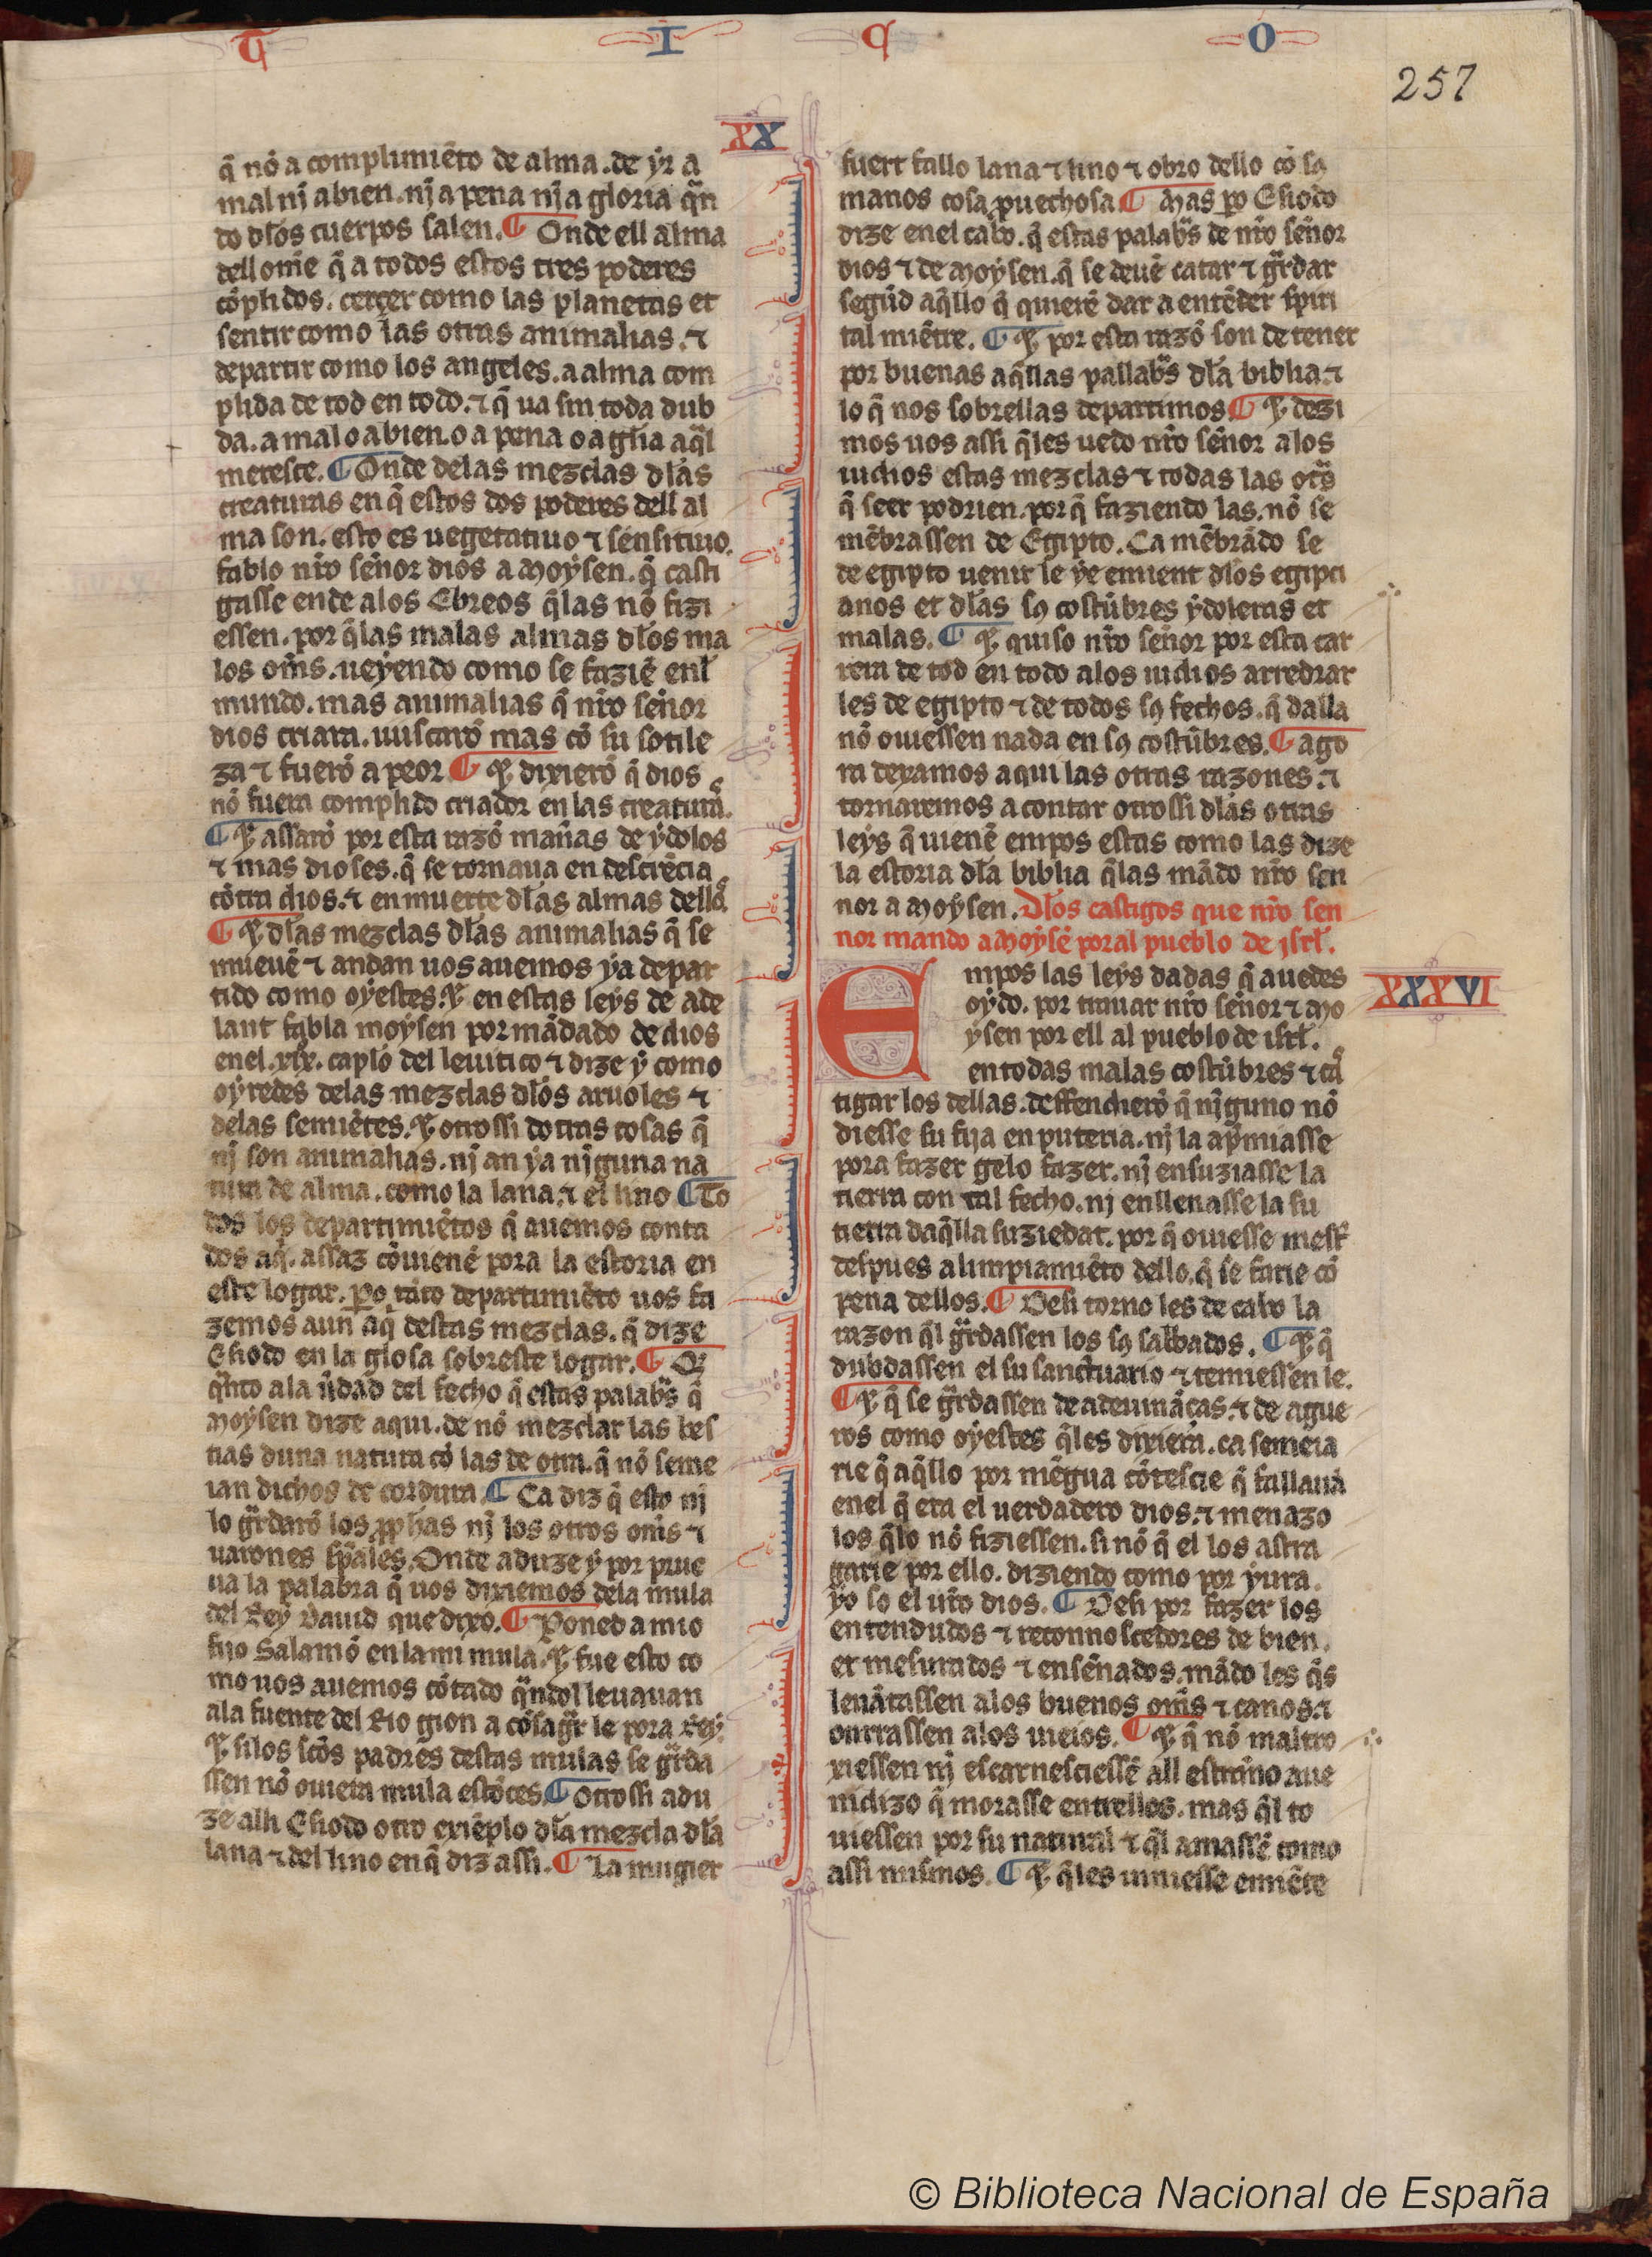 T I C O
257
XX
q̃ nõ a complimiẽto de alma. de yr a
mal nj abien. nj a pena nj a gloria qñ
do dłos cuerpos salen. ¶ Onde ell alma
dell om̃e q̃ a todos estos tres poderes
cõplidos. cerçer como las planetas et
sentir como las otras animalias. ⁊
departir como los angeles. a alma com
plida de tod en todo. ⁊ q̃ ua sin toda dub
da. a mal o abien. o a pena o a głia aq̃l
meresce. ¶ Onde delas mezclas dłas
creaturas en q̃ estos dos poderes dell al
ma son. esto es uegetatiuo ⁊ sensitiuo.
fablo nr̃o sẽnor dios a Moysen. q̃ casti
gasse ende alos Ebreos q̃las nõ fizi
essen. por q̃las malas almas dłos ma
los om̃s. ueyendo como se faziẽ enł
mundo. mas animalias q̃ nr̃o sẽnor
dios criara. uuscarõ mas cõ su sotile
za ⁊ fuerõ a peor ¶ ⁊ dixierõ q̃ dios
nõ fuera complido criador en las creaturas.
¶ ⁊ assarõ por esta razõ mañas de ydolos
⁊ mas dioses. q̃ se tornaua en descrẽcia
cõtra dios. ⁊ en muerte dłas almas dellos.
¶ ⁊ dłas mezclas dłas animalias q̃ se
mueuẽ ⁊ andan uos auemos ya depar
tido como oyestes. ⁊ en estas leys de ade
lant fabla moysen por mãdado de dios
enel .xix. capło del leuitico ⁊ dize y como
oyredes delas mezclas dłos aruoles ⁊
delas semiẽtes. ⁊ otrossi dotras cosas q̃
nj son animalias. nj an ya njguna na
tura de alma. como la lana. ⁊ el lino ¶ To
dos los departimiẽtos q̃ auemos conta
dos aq̃. assaz cõuienẽ pora la estoria en
este logar. ꝑo tãto departimiẽto uos fa
zemos aun aq̃ destas mezclas. q̃ dize
Esiodo en la glosa sobreste logar. ¶ Q̃
q̃nto ala ũdad del fecho q̃ estas palabr̃s q̃
Moysen dize aqui. de nõ mezclar las bes
tias duna natura cõ las de otra. q̃ nõ seme
ian dichos de cordura. ¶ Ca diz q̃ esto nj
lo gr̃darõ los ꝓphas nj los otros om̃s ⁊
uarones sp̃ales. Onde aduze y por prue
ua la palabra q̃ uos dixiemos dela mula
del Rey Dauid que dixo. ¶ Poned a mio
fijo Salamõ en la mi mula. ⁊ fue esto co
mo uos auemos cõtado qñdol leuauan
ala fuente del Rio gion a cõsagr̃ le pora Rey.
⁊ silos sc̃os padres destas mulas se gr̃da
ssen nõ ouiera mula estõces. ¶ Otrossi adu
ze alli Esiodo otro exiẽplo dła mezcla dła
lana ⁊ del lino en q̃ diz assi. ¶ La mugier
fuert fallo lana ⁊ lino ⁊ obro dello cõ sꝯ
manos cosa ꝓuechosa. ¶ Mas ꝑo Esiodo
dize enel cabo. q̃ estas palabr̃s de nr̃o sẽnor
dios ⁊ de Moysen. q̃ se deuẽ catar ⁊ gr̃dar
segũd aq̃llo q̃ quierẽ dar a entẽder spiri
tal miẽtre. ¶ ⁊ por esta razõ son de tener
por buenas aq̃llas pallabr̃s dła biblia. ⁊
lo q̃ nos sobrellas departimos ¶ ⁊ dezi
mos uos assi q̃les uedo nr̃o sẽnor alos
iudios estas mezclas ⁊ todas las otr̃s
q̃ seer podrien. por q̃ faziendo las. nõ se
mẽbrassen de Egipto. Ca mẽbrãdo se
de egipto uenir se ye emient dłos egipci
anos et dłas sꝯ costũbres ydolatras et
malas. ¶ ⁊ quiso nr̃o sẽnor por esta car
rera de tod en todo alos iudios arredrar
les de egipto ⁊ de todos sꝯ fechos. q̃ dalla
nõ ouiessen nada en sꝯ costũbres. ¶ ago
ra dexamos aqui las otras razones. ⁊
tornaremos a contar otrossi dłas otras
leys q̃ uienẽ empos estas como las dize
la estoria dła biblia q̃las mãdo nr̃o sen
nor a Moysen. Dłos castigos que nr̃o sen
nor mando a Moysẽ poral pueblo de jsrł.
XXXVI
Empos las leys dadas q̃ auedes
oydo. por tirmar nr̃o sẽnor ⁊ Mo
ysen por ell al pueblo de isrł.
en todas malas costũbres ⁊ cas
tigar los dellas. deffendierõ q̃ njguno nõ
diesse su fija en puteria. nj la ap̃miasse
pora fazer gelo fazer. nj ensuziasse la
tierra con tal fecho. nj enllenasse la su
tierra daq̃lla suziedat. por q̃ ouiesse mest̃
despues alimpiamiẽto dello. q̃ se farie cõ
pena dellos. ¶ Desi torno les de cabo la
razon q̃l gr̃dassen los sꝯ sabbados. ¶ ⁊ q̃
dubdassen el su sanctuario ⁊ temiessen le.
¶ ⁊ q̃ se gr̃dassen de adeuinãças. ⁊ de ague
ros como oyestes q̃les dixiera. ca semeia
rie q̃ aq̃llo por mẽgua cõtescie q̃ fallauã
enel q̃ era el uerdadero dios. ⁊ menazo
los q̃lo nõ fiziessen. si nõ q̃ el los astra
garie por ello. diziendo como por yura.
yo so el ur̃o dios. ¶ Desi por fazer los
entendudos ⁊ reconnoscedores de bien.
et mesurados ⁊ ensẽnados. mãdo les q̃s
leuãtassen alos buenos om̃s ⁊ canos. ⁊
onrrassen alos uieios. ¶ ⁊ q̃ nõ maltro
xiessen nj escarnesciessẽ all estranno aue
nidizo q̃ morasse entrellos. mas q̃l to
uiessen por su natural ⁊ q̃l amassẽ como
assi mismos. ¶ ⁊ q̃les uiniesse emiẽte
© Biblioteca Nacional de España